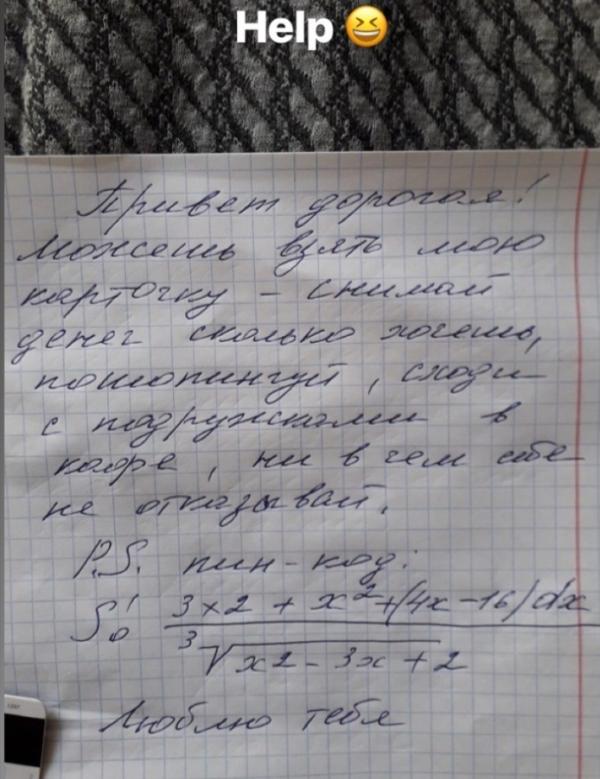 Help 😆
Привет дорогая!
Можешь взять мою
карточку - снимай
денег сколько хочешь,
пошопингуй, сходи
с подружками в
кафе, ни в чем себе
не отказывай.
P.S. пин-код:
∫₀¹ 3x2 + x² + (4x - 16) dx
∛x2 - 3x + 2
Люблю тебя